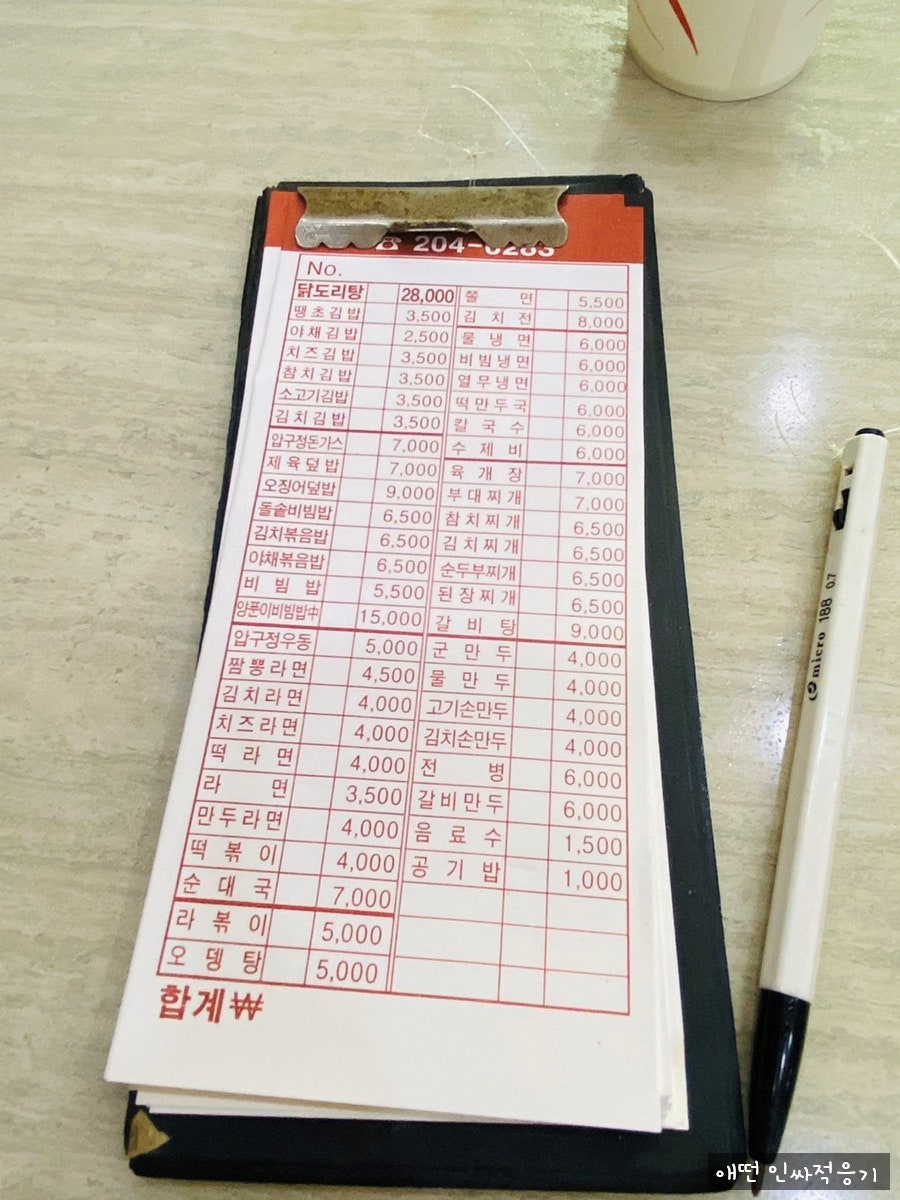 ☎ 204-0283
No.
닭도리탕 28,000
땡초김밥 3,500
야채김밥 2,500
치즈김밥 3,500
참치김밥 3,500
소고기김밥 3,500
김치김밥 3,500
압구정돈가스 7,000
제육덮밥 7,000
오징어덮밥 9,000
돌솥비빔밥 6,500
김치볶음밥 6,500
야채볶음밥 6,500
비빔밥 5,500
양푼이비빔밥中 15,000
압구정우동 5,000
짬뽕라면 4,500
김치라면 4,000
치즈라면 4,000
떡라면 4,000
라면 3,500
만두라면 4,000
떡볶이 4,000
순대국 7,000
라볶이 5,000
오뎅탕 5,000
쫄면 5,500
김치전 8,000
물냉면 6,000
비빔냉면 6,000
열무냉면 6,000
떡만두국 6,000
칼국수 6,000
수제비 6,000
육개장 7,000
부대찌개 7,000
참치찌개 6,500
김치찌개 6,500
순두부찌개 6,500
된장찌개 6,500
갈비탕 9,000
군만두 4,000
물만두 4,000
고기손만두 4,000
김치손만두 4,000
전병 6,000
갈비만두 6,000
음료수 1,500
공기밥 1,000
합계 ₩
micro 188 0.7
애떤 인싸적응기